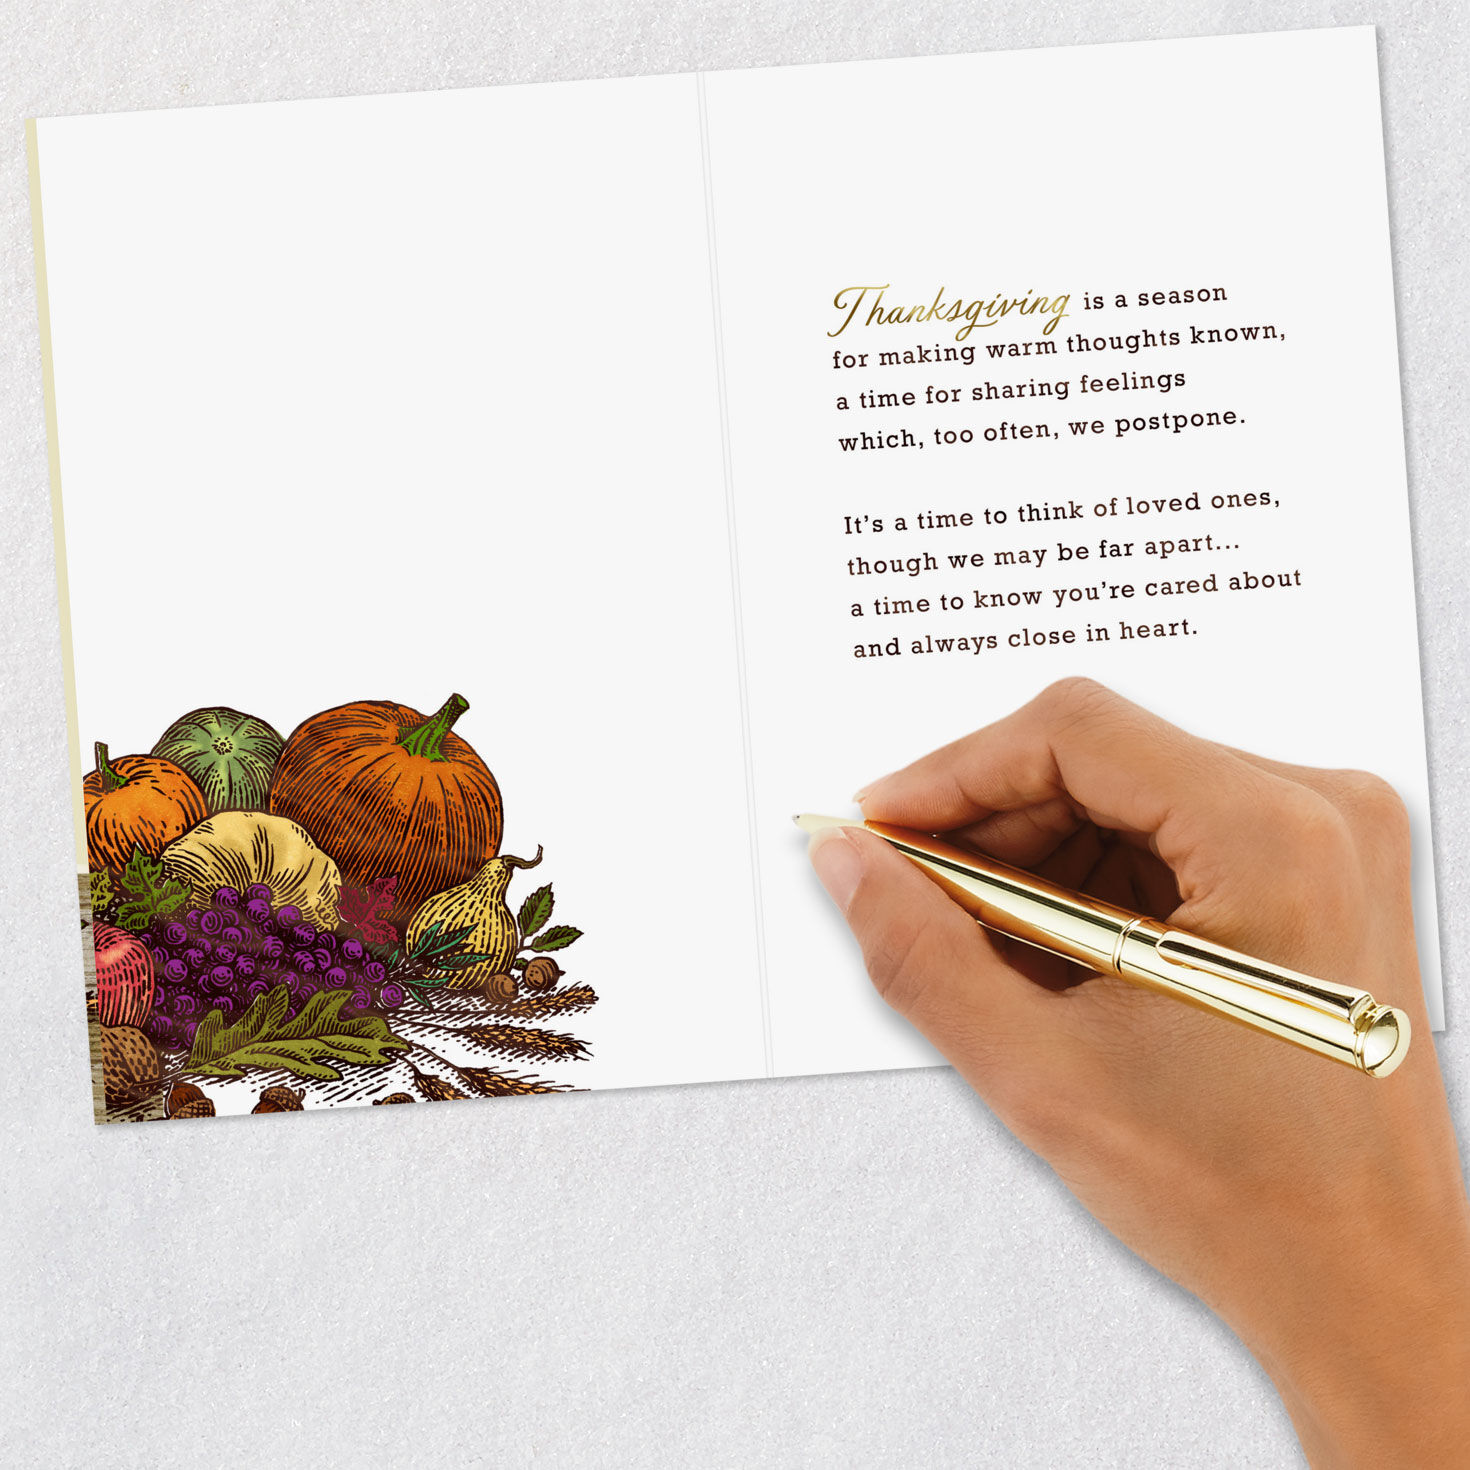 Thanksgiving is a season
for making warm thoughts known,
a time for sharing feelings
which, too often, we postpone.
It's a time to think of loved ones,
though we may be far apart...
a time to know you're cared about
and always close in heart.